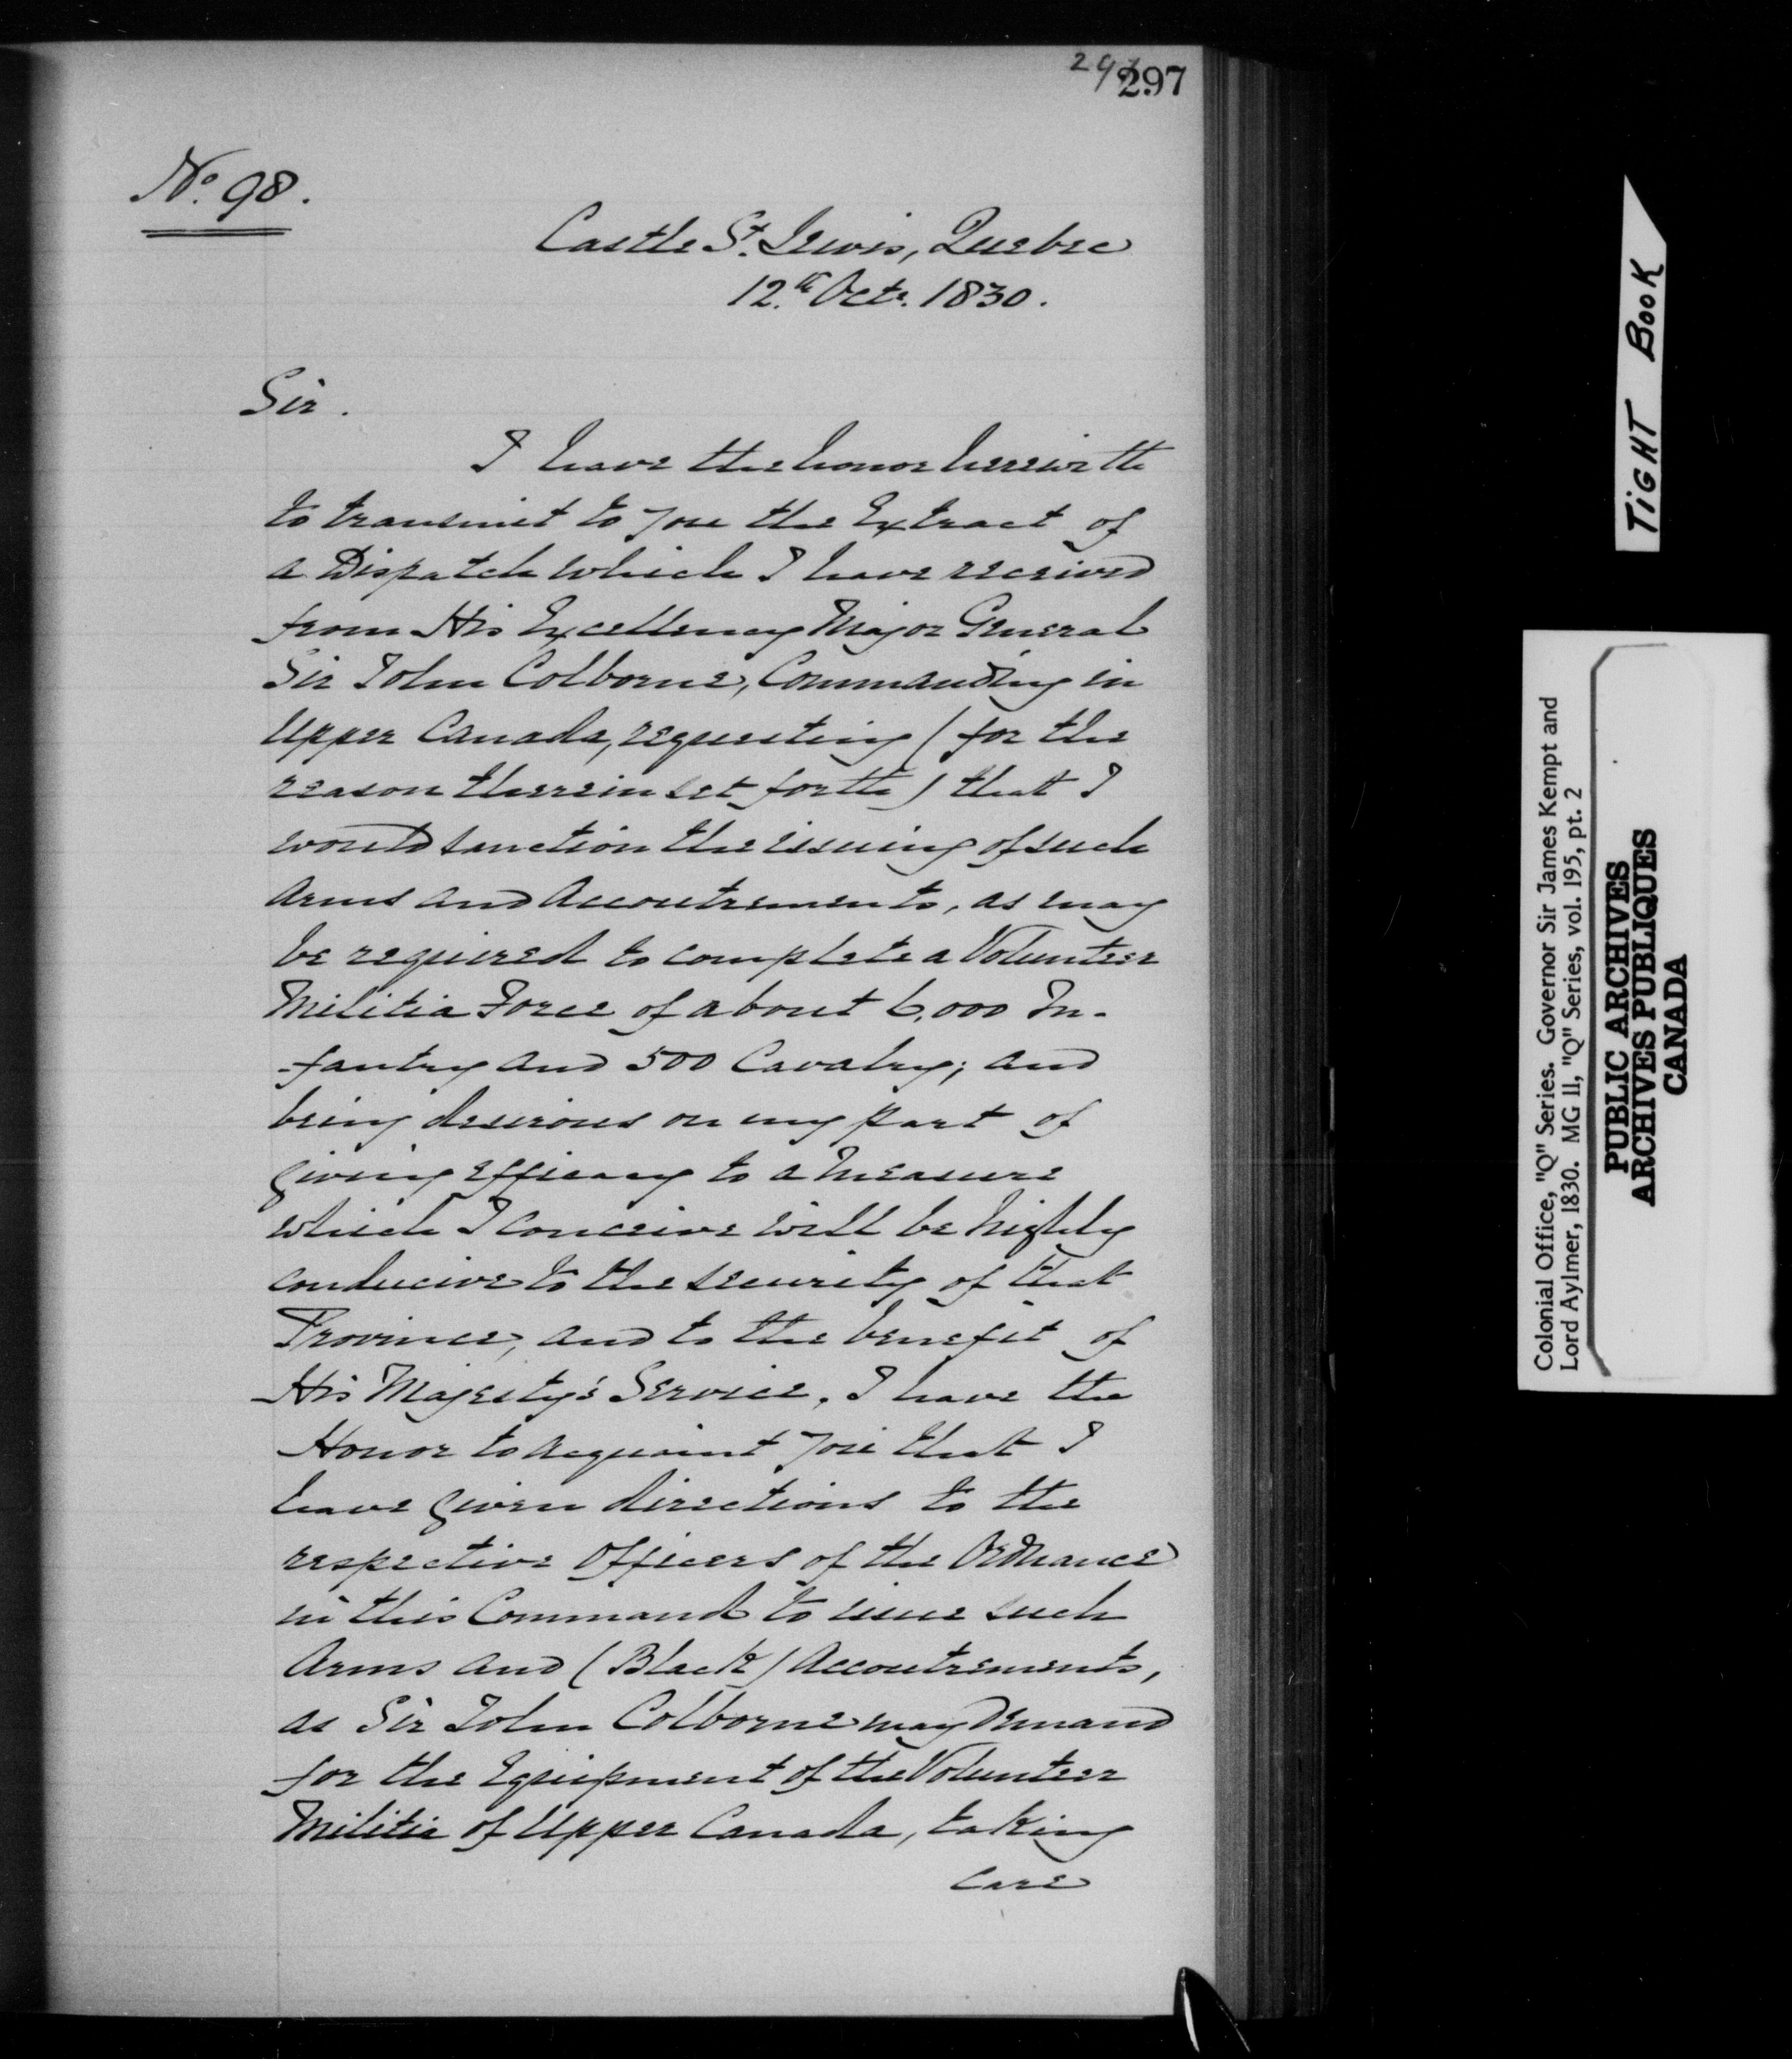 297
297
No. 98.
Castle St. Lewis, Quebec
12.th Octr. 1830.
Sir.
I have the honor herewith
to transmit to you the Extract of
a Dispatch which I have received
from His Excellency Major General
Sir John Colborne, Commanding in
Upper Canada, requesting (for the
reason therein set forth) that I
would sanction the issuing of such
Arms and Accoutrements, as may
be required to complete a Volunteer
Militia Force of about 6,000 In-
-fantry and 500 Cavalry; and
being desirous on my part of
giving efficacy to a measure
which I conceive will be highly
conducive to the security of that
Province, and to the benefit of
His Majesty's Service, I have the
Honor to acquaint you that I
have given directions to the
respective Officers of the Ordnance
in this Command to issue such
Arms and (Black) Accoutrements,
as Sir John Colborne may demand
for the Equipment of the Volunteer
Militia of Upper Canada, taking
care
TIGHT BOOK
Colonial Office, "Q" Series. Governor Sir James Kempt and
Lord Aylmer, 1830. MG 11, "Q" Series, vol. 195, pt. 2
PUBLIC ARCHIVES
ARCHIVES PUBLIQUES
CANADA